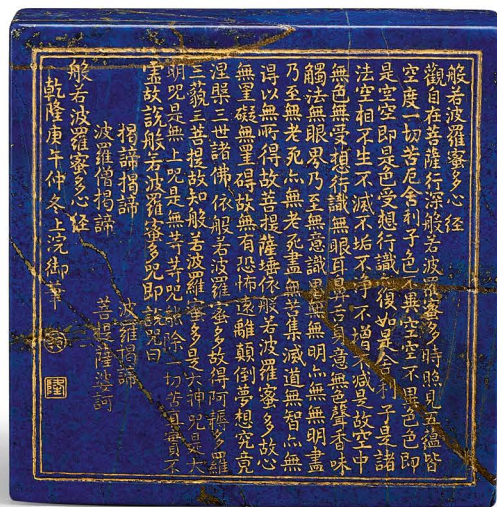 般若波羅蜜多心經
觀自在菩薩行深般若波羅蜜多時照見五蘊皆
空度一切苦厄舍利子色不異空空不異色色即
是空空即是色受想行識亦復如是舍利子是諸
法空相不生不滅不垢不淨不增不減是故空中
無色無受想行識無眼耳鼻舌身意無色聲香味
觸法無眼界乃至無意識界無無明亦無無明盡
乃至無老死亦無老死盡無苦集滅道無智亦無
得以無所得故菩提薩埵依般若波羅蜜多故心
無罣礙無罣礙故無有恐怖遠離顛倒夢想究竟
涅槃三世諸佛依般若波羅蜜多故得阿耨多羅
三藐三菩提故知般若波羅蜜多是大神呪是大
明呪是無上呪是無等等呪能除一切苦真實不
虛故說般若波羅蜜多呪即說呪曰
揭諦揭諦 波羅揭諦
波羅僧揭諦 菩提薩婆訶
般若波羅蜜多心經
乾隆庚午仲冬上浣御筆
乾
隆